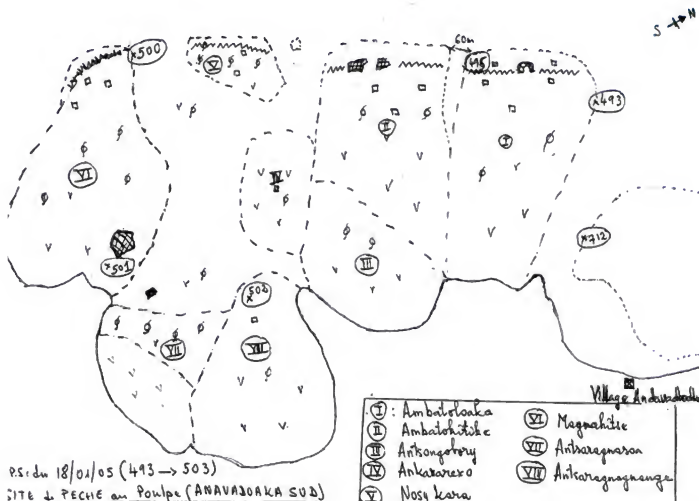 S N
60m
x500
V
495
x493
II
I
VI
IV
x712
III
x501
x502
VII
VIII
Village Andavadoaka
I : Ambatoloaka
II Ambatohitike
III Antsongobory
IV Ankararexo
V Nosy Kara
VI Magnahitse
VII Antsaragnasoa
VIII Antsaragnagnange
P.S: du 18/01/05 (493 → 503)
SITE de PECHE au Poulpe (ANAVADOAKA SUD)